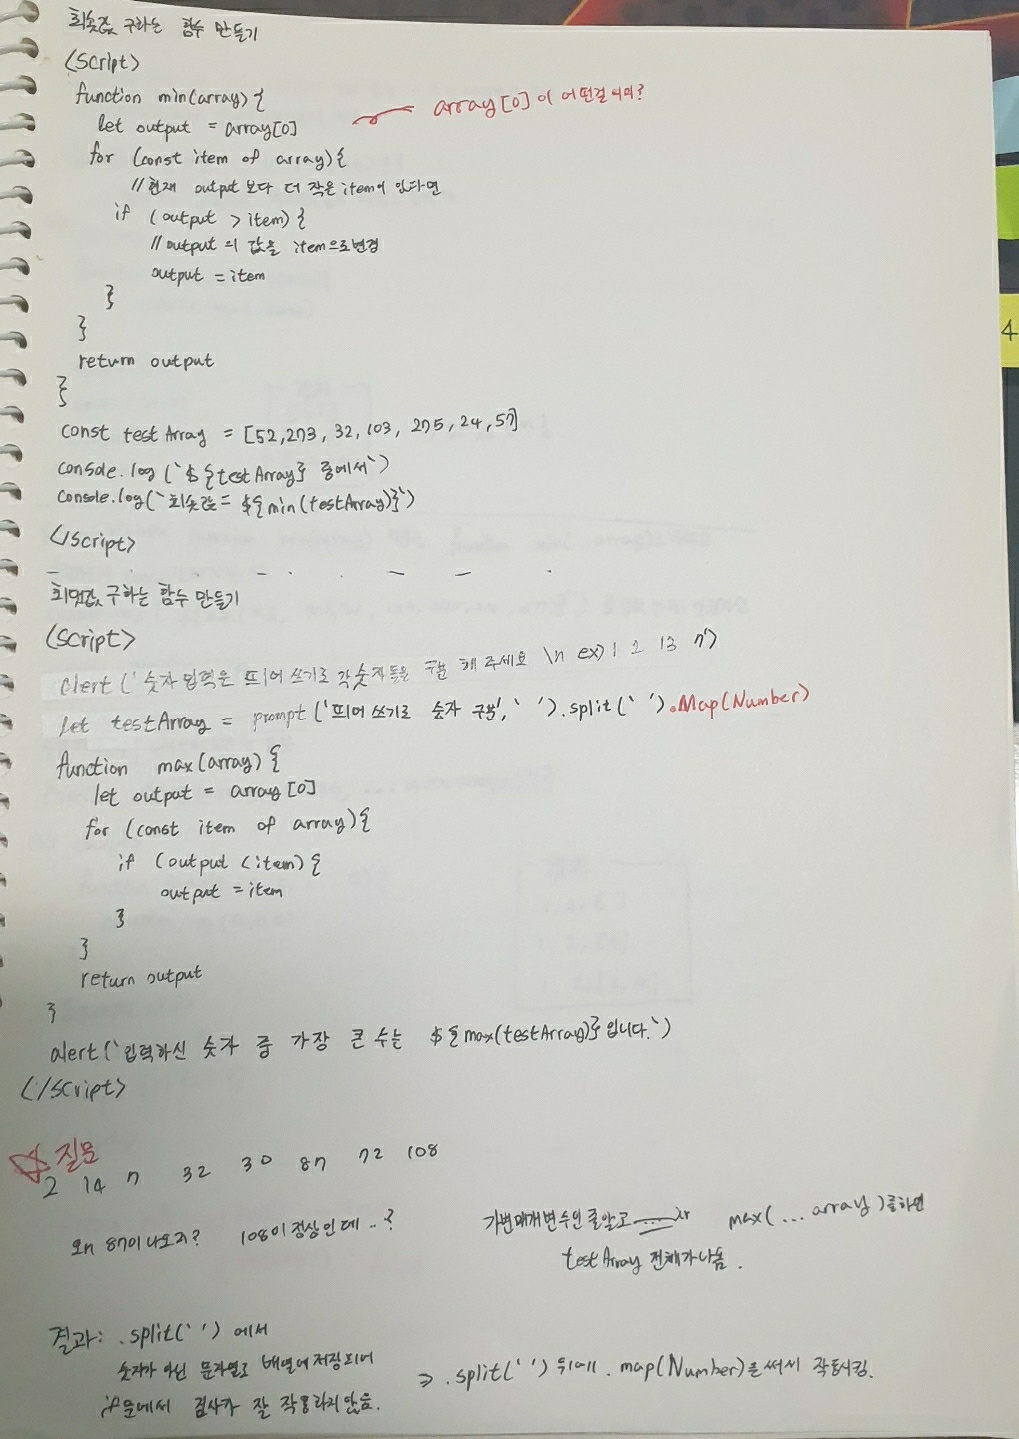 최솟값 구하는 함수 만들기
<script>
function min(array) {
let output = array[0]
array[0]이 어떤걸 의미?
for (const item of array) {
// 현재 output 보다 더 작은 item이 있다면
if (output > item) {
// output의 값을 item으로 변경
output = item
}
}
return output
}
const testArray = [52, 273, 32, 103, 275, 24, 57]
console.log(`${testArray} 중에서`)
console.log(`최솟값 = ${min(testArray)}`)
</script>
최댓값 구하는 함수 만들기
<script>
alert('숫자 입력은 띄어 쓰기로 각 숫자들을 구분 해 주세요 \n ex) 1 2 13 7')
let testArray = prompt('띄어 쓰기로 숫자 구분', ' ').split(' ').Map(Number)
function max(array) {
let output = array[0]
for (const item of array) {
if (output < item) {
output = item
}
}
return output
}
alert(`입력하신 숫자 중 가장 큰 수는 ${max(testArray)} 입니다.`)
</script>
☆ 질문
2 14 7 32 30 87 72 108
왜 87이 나오지? 108이 정상인데 ..?
가변매개변수인 줄 알고 max(...array)를 하면
testArray 전체가 나옴.
결과: .split(' ') 에서
숫자가 아닌 문자열로 배열에 저장되어
if문에서 검사가 잘 작동하지 않음.
⇒ .split(' ') 뒤에 .map(Number)을 써서 작동시킴.
4